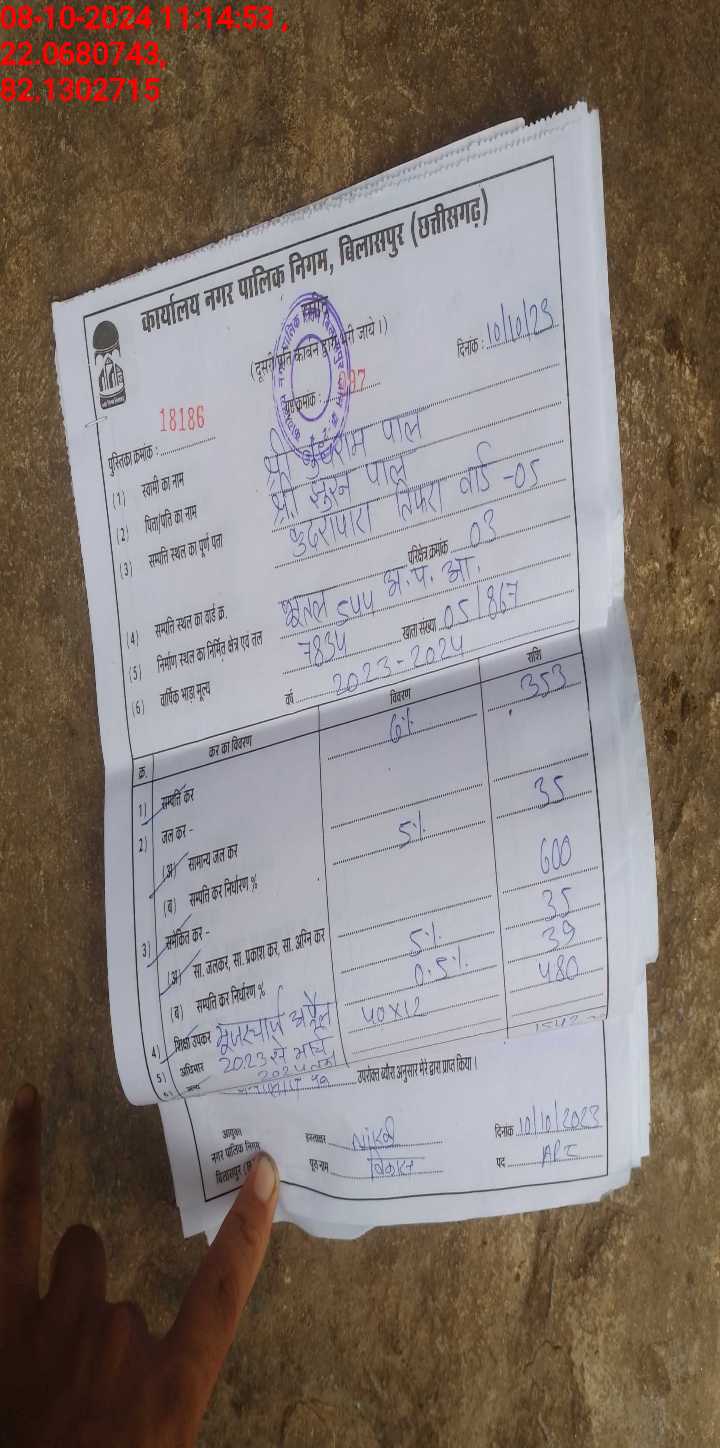 08-10-2024 11:14:53 ,
22.0680743,
82.1302715
कार्यालय नगर पालिक निगम, बिलासपुर (छत्तीसगढ़)
रसीद
(दूसरी प्रति कार्बन द्वारा भरी जाये।)
पुस्तिका क्रमांक : 18186 पृष्ठ क्रमांक : 097 दिनांक : 10/10/23
(1) स्वामी का नाम श्री पाल
(2) पिता/पति का नाम श्री पाल
(3) सम्पति स्थल का पूर्ण पता कुदरापारा तिफरा वार्ड -05
(4) सम्पति स्थल का वार्ड क्र. परिक्षेत्र क्रमांक 03
(5) निर्माण स्थल का निर्मित क्षेत्र एवं तल भूतल 544 अ.प. आ.
(6) वार्षिक भाड़ा मूल्य 7834 खाता संख्या 05/867
वर्ष 2023-2024
क्र. कर का विवरण विवरण राशि
1) सम्पत्ति कर 6% 353
2) जल कर -
(अ) सामान्य जल कर
(ब) सम्पति कर निर्धारण % 5% 35
3) समेकित कर -
(अ) सा. जलकर, सा. प्रकाश कर, सा. अग्नि कर 600
(ब) सम्पति कर निर्धारण % 5% 35
4) शिक्षा उपकर 0.5% 39
5) अधिभार यूजरचार्ज अप्रैल 40x12 480
2023 से मार्च
2024 तक
1542
उपरोक्त ब्यौरा अनुसार मेरे द्वारा प्राप्त किया।
आयुक्त
नगर पालिक निगम
बिलासपुर
हस्ताक्षर दिनांक 10/10/2023
पूरा नाम पद ARI